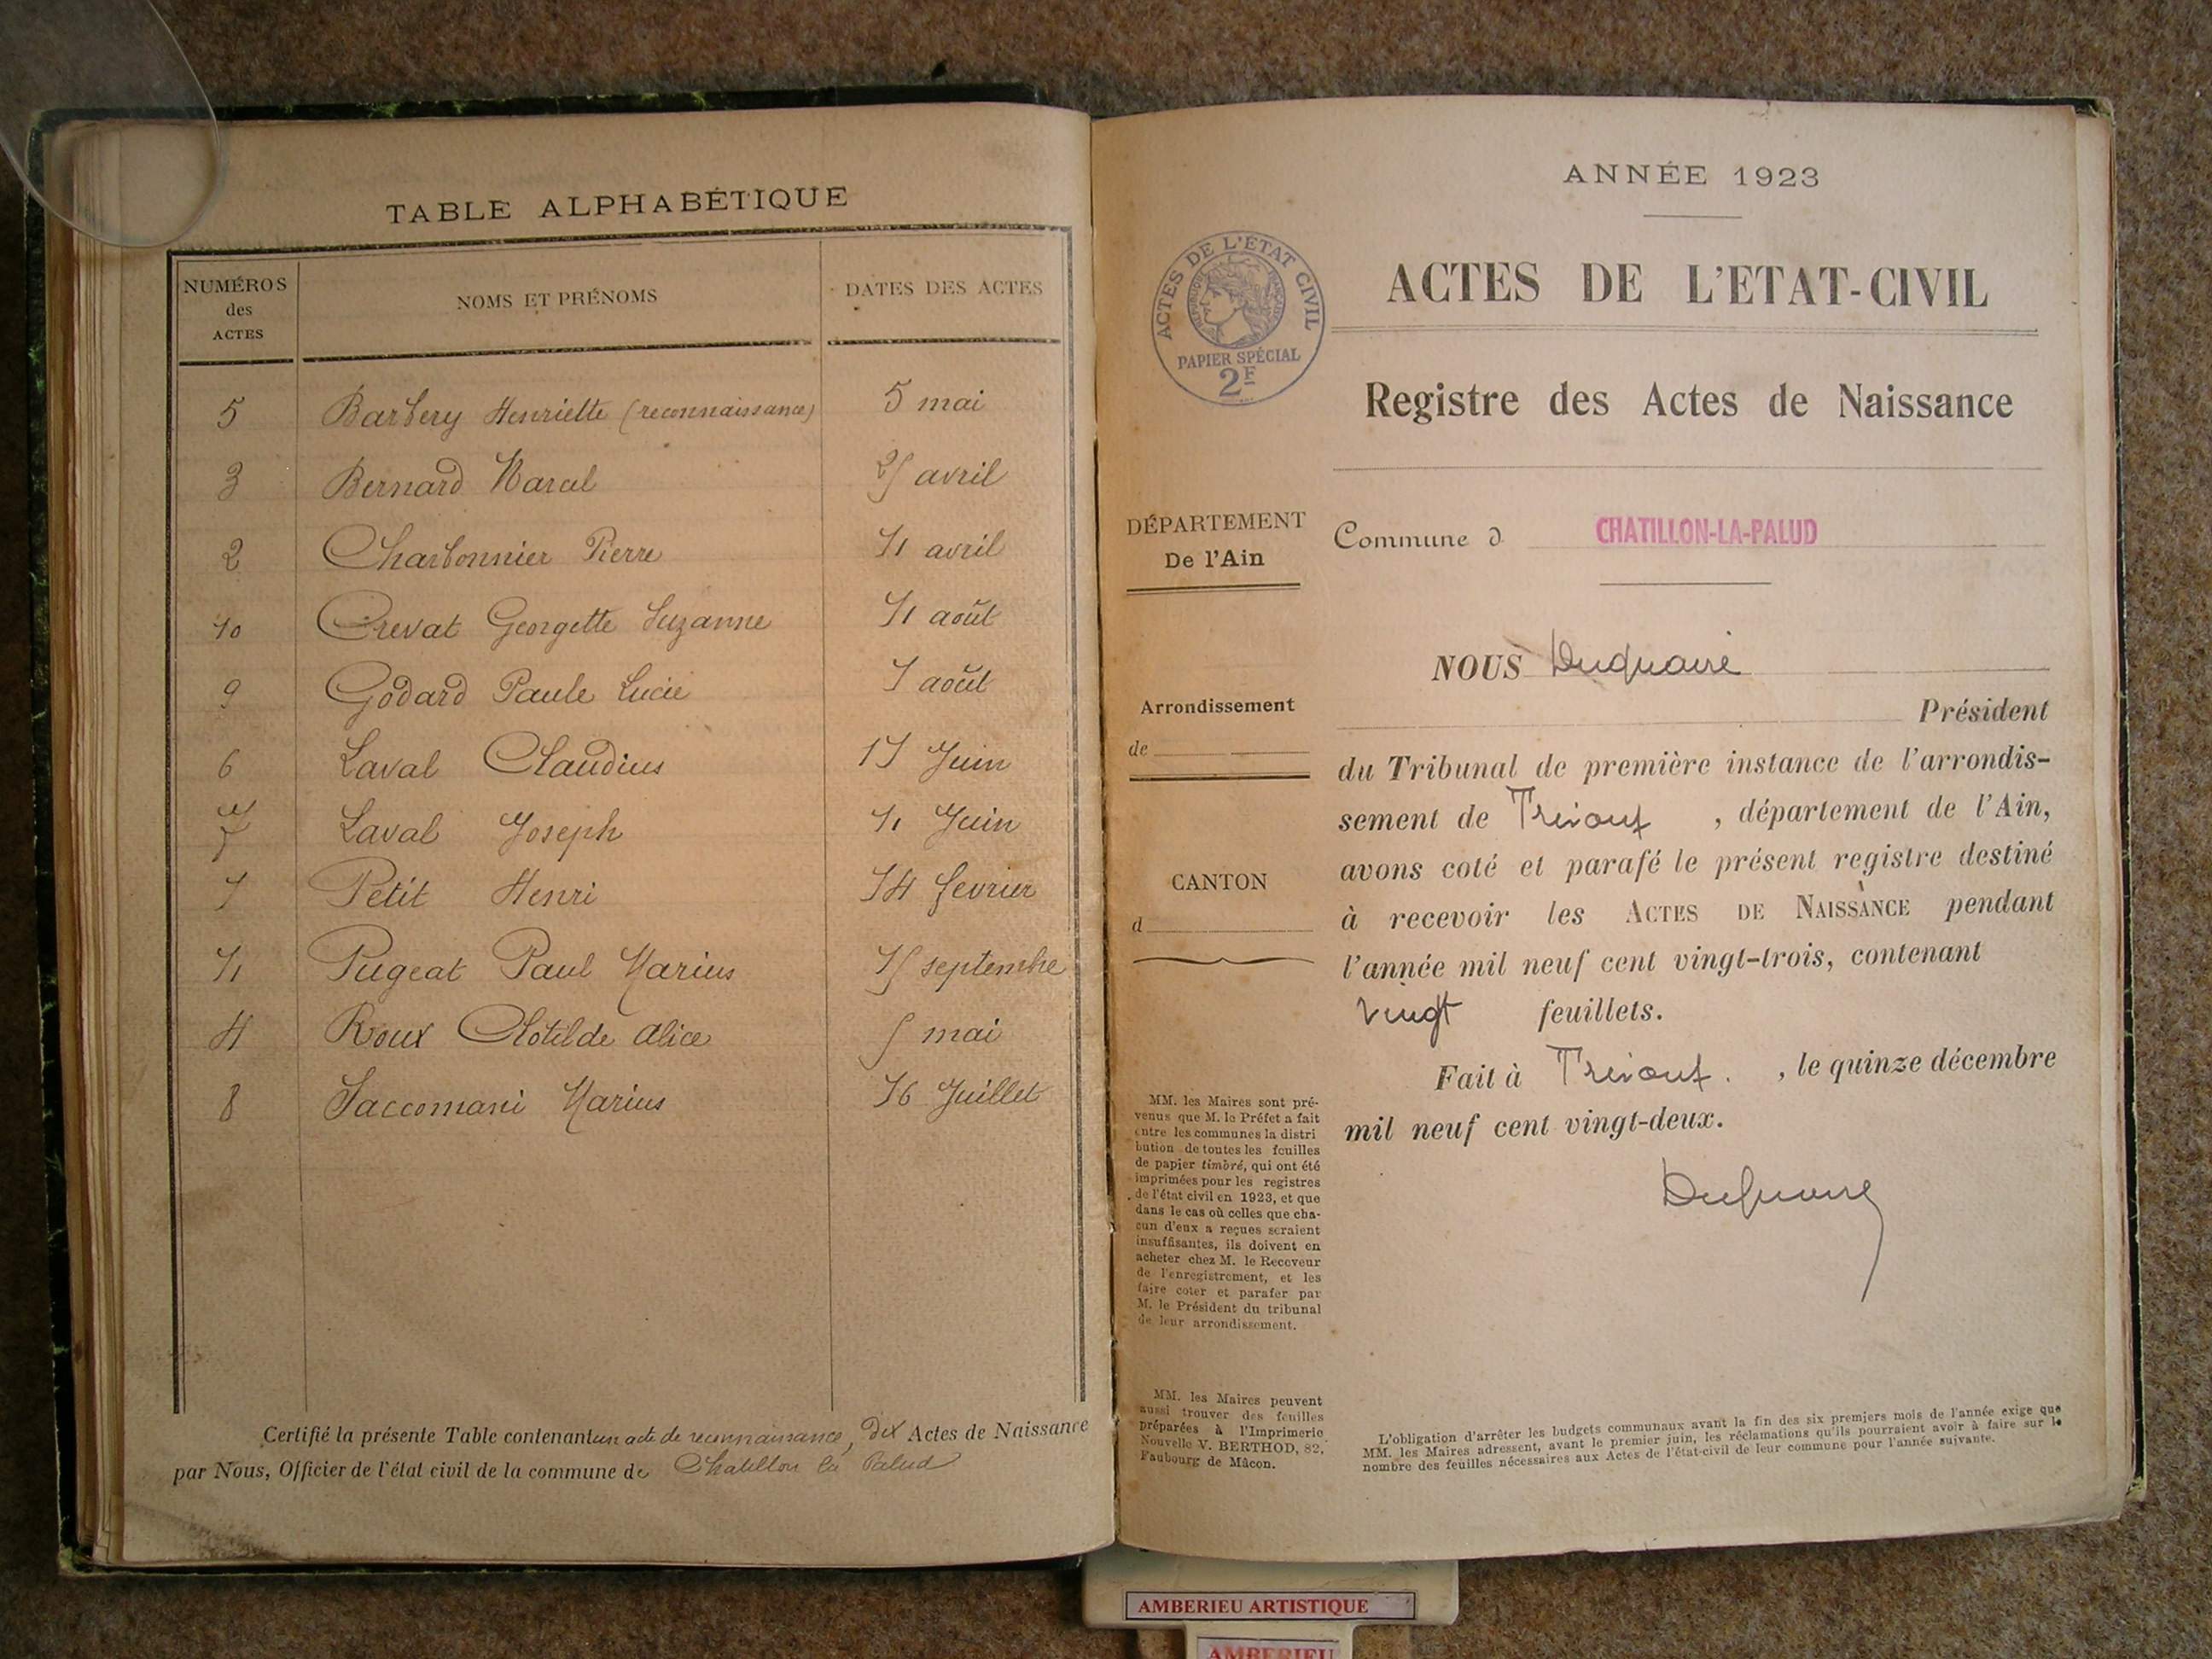 TABLE ALPHABÉTIQUE
NUMÉROS des ACTES
NOMS ET PRÉNOMS
DATES DES ACTES
5 Barbery Henriette (reconnaissance) 5 mai
3 Bernard Marcel 25 avril
2 Charbonnier Pierre 11 avril
10 Crevat Georgette Suzanne 11 août
9 Godard Paule Lucie 1 août
6 Laval Claudius 11 Juin
7 Laval Joseph 11 Juin
1 Petit Henri 14 fevrier
11 Pugeat Paul Marius 15 septembre
4 Roux Clotilde Alice 5 mai
8 Saccomani Marius 16 Juillet
Certifié la présente Table contenant un acte de reconnaissance, dix Actes de Naissance
par Nous, Officier de l'état civil de la commune de Chatillon la Palud
ANNÉE 1923
ACTES DE L'ÉTAT CIVIL
RÉPUBLIQUE FRANÇAISE
PAPIER SPÉCIAL
2F
ACTES DE L'ETAT-CIVIL
Registre des Actes de Naissance
DÉPARTEMENT
De l'Ain
Commune d CHATILLON-LA-PALUD
Arrondissement
de
CANTON
d
NOUS Duquaire
Président
du Tribunal de première instance de l'arrondis-
sement de Trévoux, département de l'Ain,
avons coté et parafé le présent registre destiné
à recevoir les ACTES DE NAISSANCE pendant
l'année mil neuf cent vingt-trois, contenant
vingt feuillets.
Fait à Trévoux., le quinze décembre
mil neuf cent vingt-deux.
Duquaire
MM. les Maires sont pré-
venus que M. le Préfet a fait
entre les communes la distri
bution de toutes les feuilles
de papier timbré, qui ont été
imprimées pour les registres
de l'état civil en 1923, et que
dans le cas où celles que cha-
cun d'eux a reçues seraient
insuffisantes, ils doivent en
acheter chez M. le Receveur
de l'enregistrement, et les
faire coter et parafer par
M. le Président du tribunal
de leur arrondissement.
MM. les Maires peuvent
aussi trouver des feuilles
préparées à l'Imprimerie
Nouvelle V. BERTHOD, 82,
Faubourg de Mâcon.
L'obligation d'arrêter les budgets communaux avant la fin des six premiers mois de l'année exige que
MM. les Maires adressent, avant le premier juin, les réclamations qu'ils pourraient avoir à faire sur le
nombre des feuilles nécessaires aux Actes de l'état-civil de leur commune pour l'année suivante.
AMBERIEU ARTISTIQUE
AMBERIEU